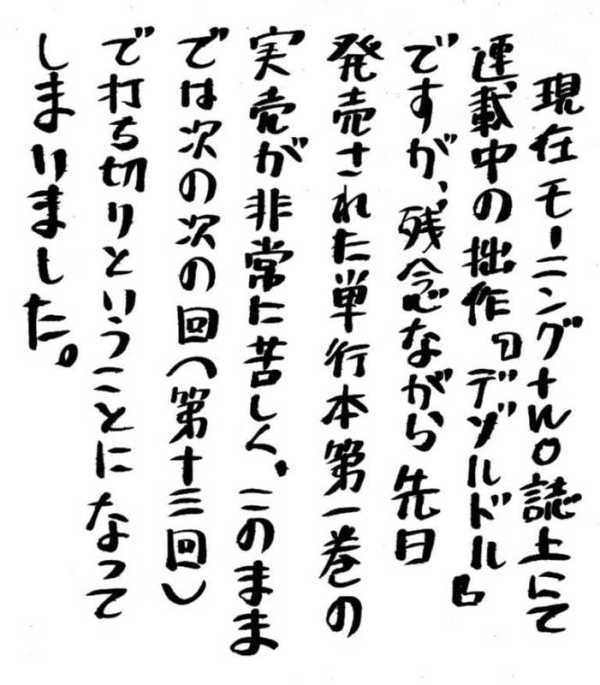 現在モーニングtwo誌上にて
連載中の拙作『デゾルドル』
ですが、残念ながら先日
発売された単行本第一巻の
実売が非常に苦しく、このまま
では次の次の回(第十三回)
で打ち切りということになって
しまいました。